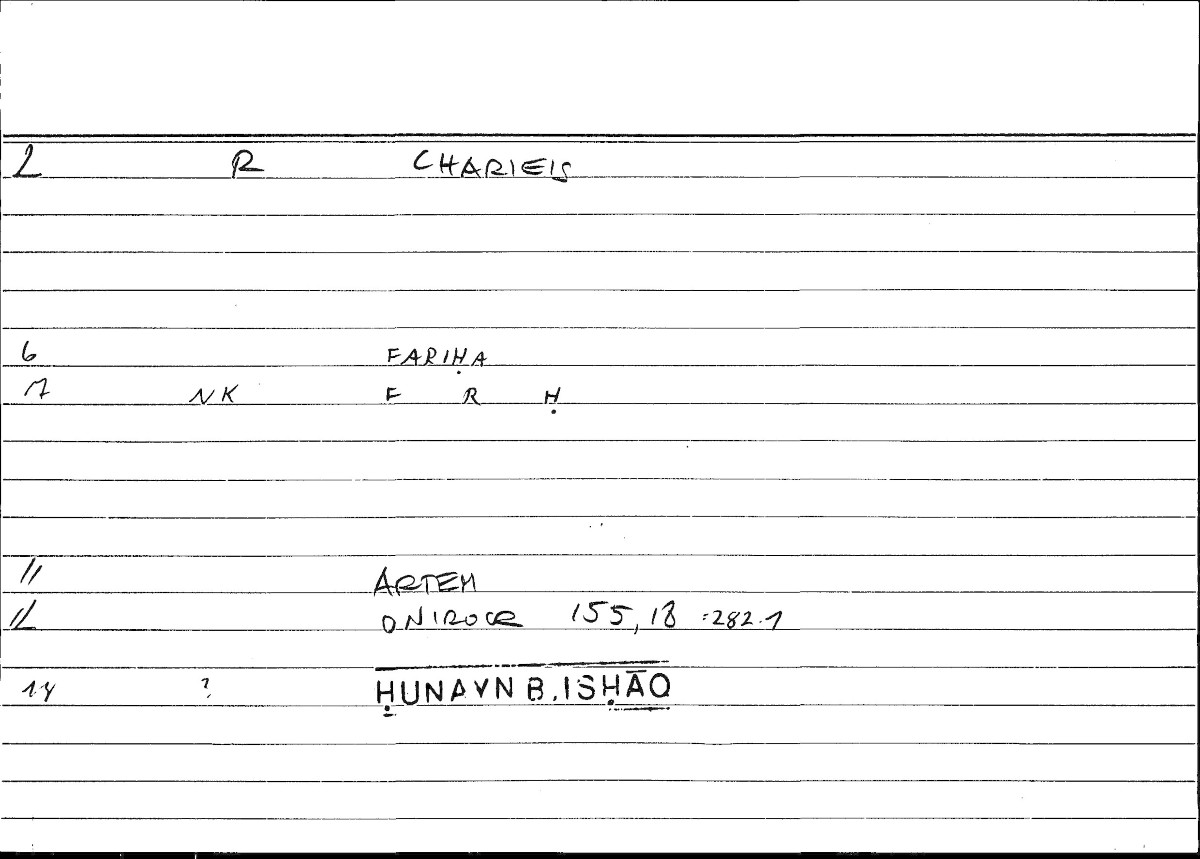 2 R CHARIEIS
6 FARIḤA
7 NK F R Ḥ
11 ARTEM
12 ONIROCR 155,18 =282.1
14 ? ḤUNAYN B. ISḤĀQ